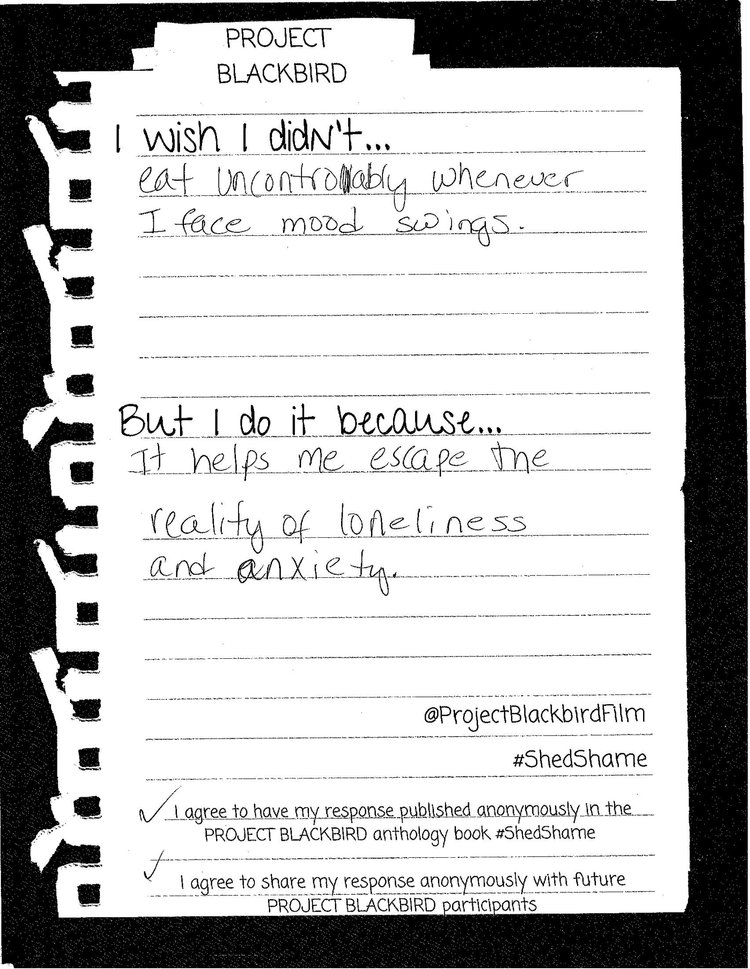 PROJECT
BLACKBIRD
I wish I didn't...
eat uncontrollably whenever
I face mood swings.
But I do it because...
It helps me escape the
reality of loneliness
and anxiety.
@ProjectBlackbirdFilm
#ShedShame
✓ I agree to have my response published anonymously in the
PROJECT BLACKBIRD anthology book #ShedShame
✓ I agree to share my response anonymously with future
PROJECT BLACKBIRD participants